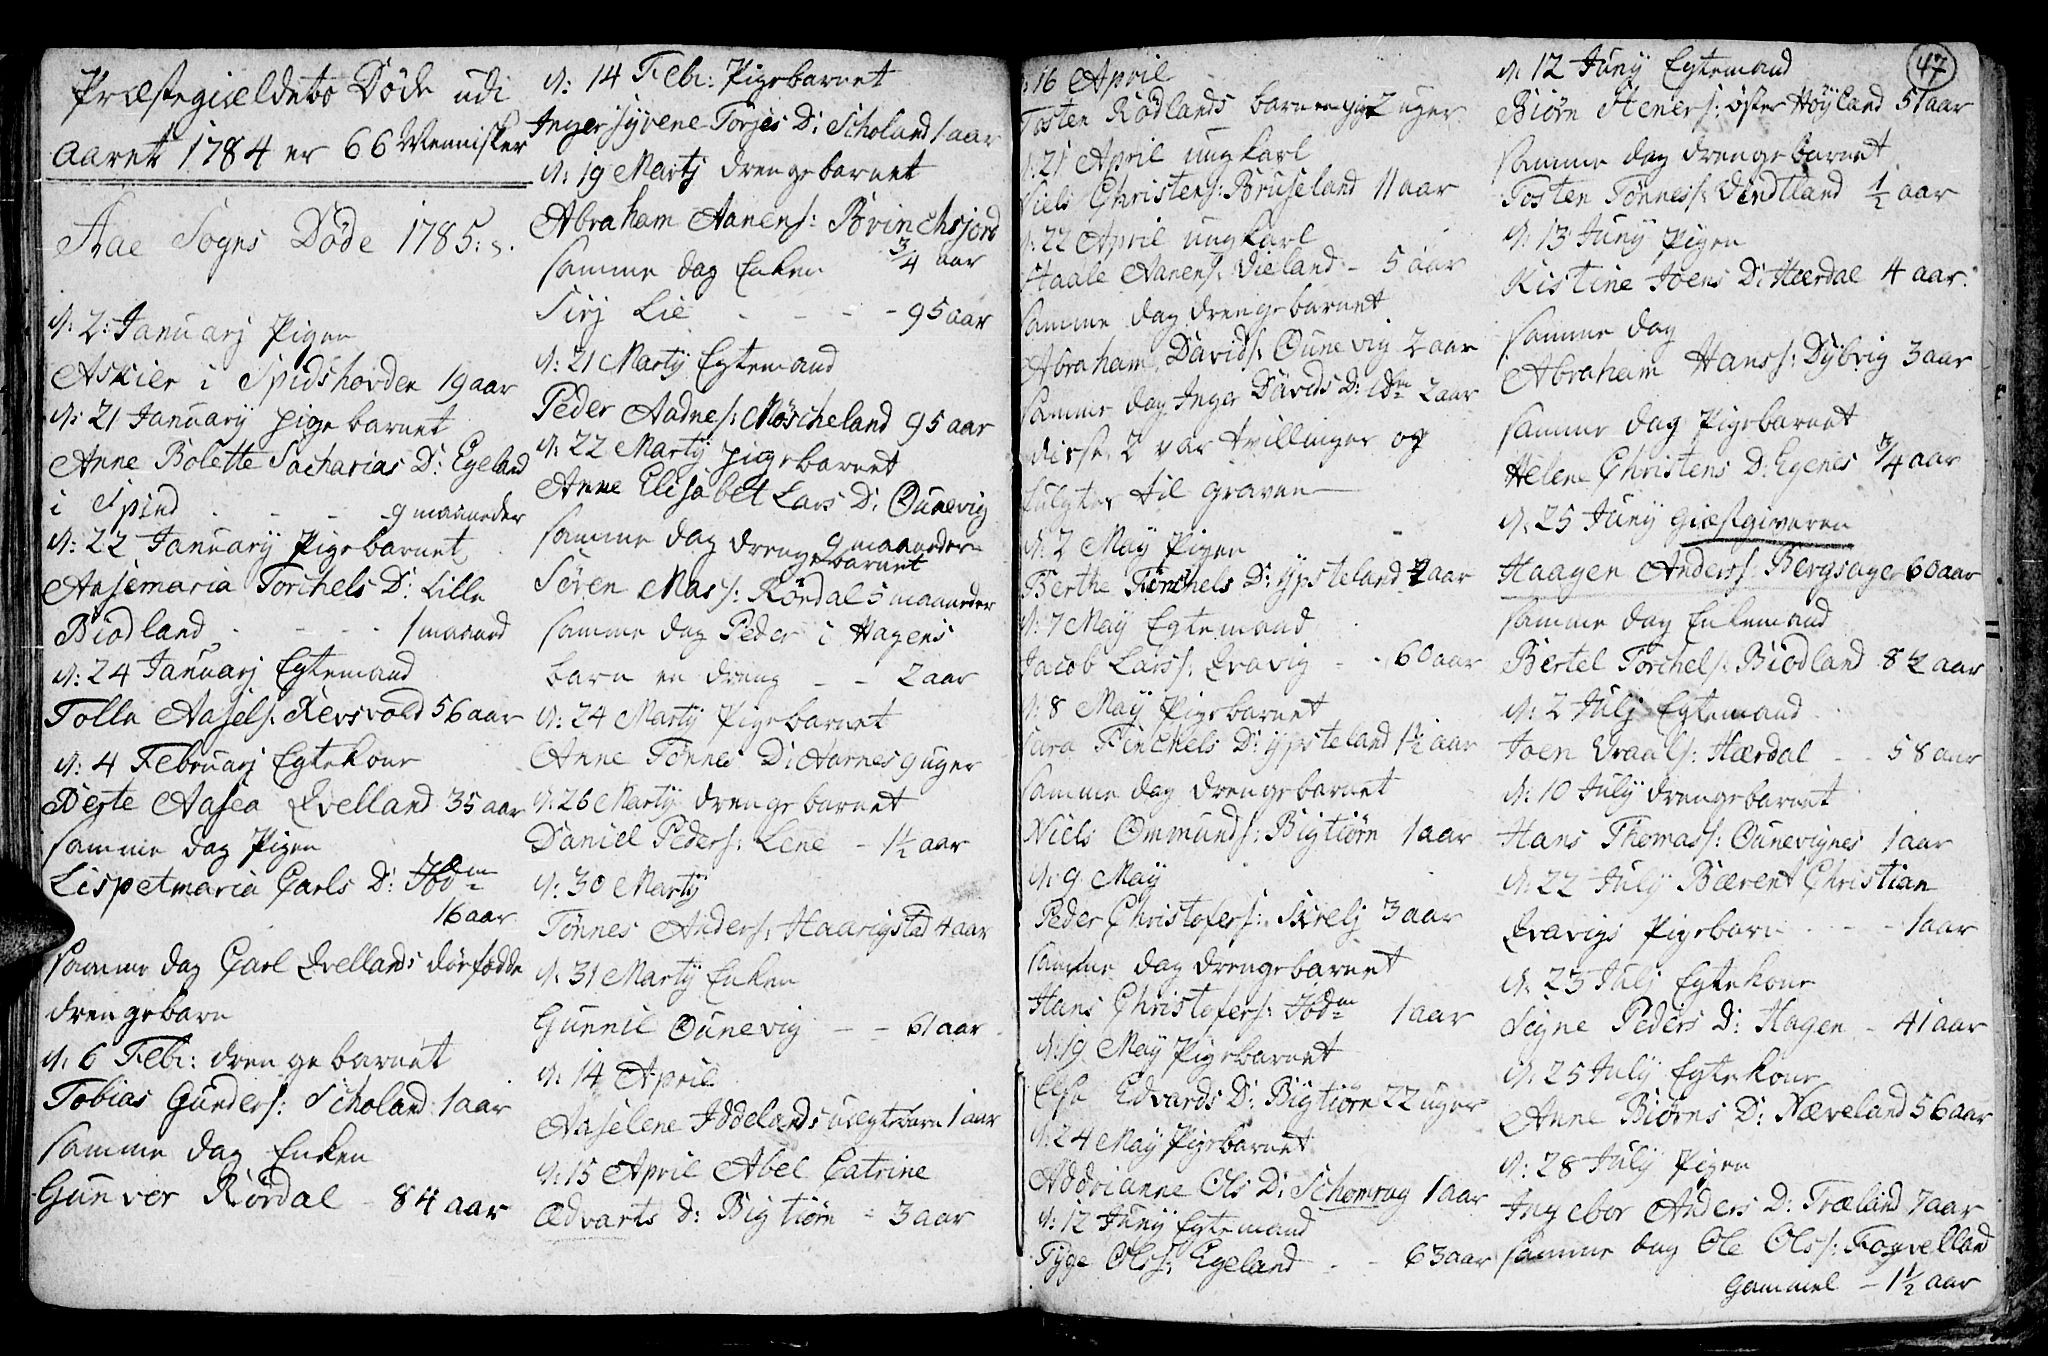 Præstegieldets Døde udi
Aaret 1784 er 66 Mennisker
Aae Sogns Døde 1785:
N: 2: Januarj Pigen
Askier i Spidshovden 19 aar
N: 21 Januarÿ pige barnet
Anne Bolette Sacharias D: Egeland
i Spind - - - 9 maaneder
N: 22 Januarÿ Pigebarnet
Aasemaria Torchels D: Lille
Biodland - - - 1 maaned
N: 24 Januarj Egtemand
Tolla Aasels: Revsvold 56 aar
N: 4 Februarj Egtekone
Berte Aasea Qvelland 35 aar
samme dag Pigen
Lispetmaria Carls D: Ibdm
16 aar
samme dag Carl Qvellands dødfødde
drengebarn
N: 6 Febr: drengebarnet
Tobias Gunders: Scholand 1 aar
samme dag Enken
Gunvor Rørdal - 84 aar
N: 14 Febr: Pigebarnet
Inger Syvene Torjes D: Scholand 1 aar
N: 19 Martj drengebarnet
Abraham Aanens: Brvinchsjord
samme dag Enken 3/4 aar
Sirj Lie - - - 95 aar
N: 21 Martÿ Egtemand
Peder Aadnes: Møscheland 95 aar
N: 22 Martÿ pigebarnet
Anne Elisabet Lars D: Øunevig
samme dag drenge 9 maaneder
barnet
Søren Mas s: Rørdal 5 maaneder
samme dag Peder i Hagens
barn en dreng - - 2 aar
N: 24 Martÿ Pigebarnet
Anne Tønnes D: Aarnes 9 uger
N: 26 Martÿ drengebarnet
Daniel Peders: Lene - 1 1/2 aar
N: 30 Martÿ
Tønnes Anders: Haarigstad 4 aar
N: 31 Martÿ Enken
Gunnil Øunevig - - 61 aar
N: 14 April
Aaselene Iddelands uægtebarn 1 aar
N: 15 April Abel Catrine
Ædvarts D: Bigtiørn - 3 aar
47
: 16 April
Tosten Rødlands barn en pige 2 uger
N: 21 April ungkarl
Niels Christens: Bruseland 11 aar
N: 22 April ungkarl
Staale Aanens: Vieland - 5 aar
samme dag drengebarnet
Abraham Davids: Øunevig 2 aar
samme dag Inger Davids D: Ibdm 2 aar
disse 2 var tvillinger og
fulgtes til graven
N: 2 May Pigen
Berthe Tørchels D: Ypsteland 2 aar
N: 7 May Egtemand
Jacob Lars s: Qvavig - - 60 aar
N: 8 May Pigebarnet
Sara Finchels D: Ypsteland 1 1/2 aar
samme dag drengebarnet
Niels Ommunds: Bigtiørn 1 aar
N: 9 May
Peder Christofers: Skrelj 3 aar
samme dag drengebarnet
Hans Christofers: Ibdm 1 aar
N: 19 May Pigebarnet
Elsa Edvards D: Bigtiørn 22 uger
N: 24 May Pigebarnet
Addrianne Ols D: Schomrag 1 aar
N: 12 Junÿ Egtemand
Tÿge Ols s: Egeland - - 63 aar
N: 12 Junÿ Egtemand
Biørn Steners: Øster Høÿland 51 aar
samme dag drengebarnet
Tosten Tønnes s: Vendtland 1/2 aar
N: 13 Junÿ Pigen
Kistine Joens D: Hærdal 4 aar
samme dag
Abraham Hans s: Dÿbvig 3 aar
samme dag Pigebarnet
Helene Christens D: Egenes 3/4 aar
N: 25 Junÿ Giæstgiveren
Haagen Anders s: Bergsager 60 aar
samme dag Enkemand
Bertel Torchels: Biodland 82 aar
N: 2 Julj Egtemand
Joen Vraals: Hærdal - - 58 aar
N: 10 Julÿ drengebarnet
Hans Thomas s: Øunevignes 1 aar
N: 22 Julÿ Bærent Christian
Qvavigs Pigebarn - - - 1 aar
N: 23 Julj Egtekone
Signe Peders D: Hagen - 41 aar
N: 25 Julÿ Egtekone
Anne Biørns D: Næveland 56 aar
N: 28 Julÿ Pigen
Ingebor Anders D: Træland 7 aar
samme dag Ole Ols s: Foyvelland
Gammel - 1 1/2 aar